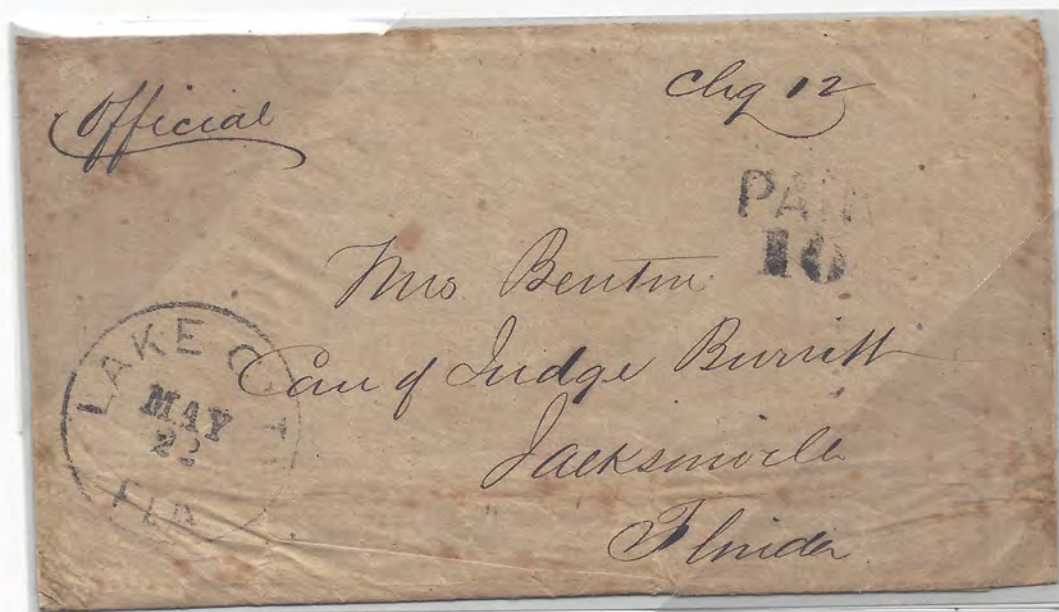 Official
Chg 12
PAID
10
Mrs. Benton
Care of Judge Burritt
Jacksonville
Florida
LAKE CITY
MAY
22
FLA